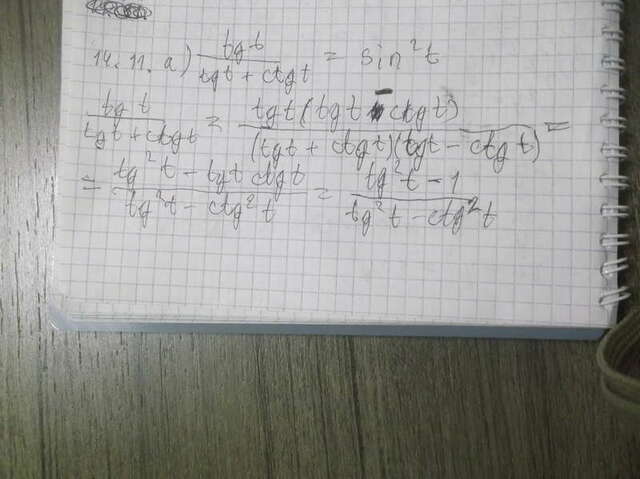 14.11. а) tg t / (tg t + ctg t) = sin² t
tg t / (tg t + ctg t) = tg t (tg t - ctg t) / ((tg t + ctg t)(tg t - ctg t)) =
= (tg² t - tg t ctg t) / (tg² t - ctg² t) = (tg² t - 1) / (tg² t - ctg² t)